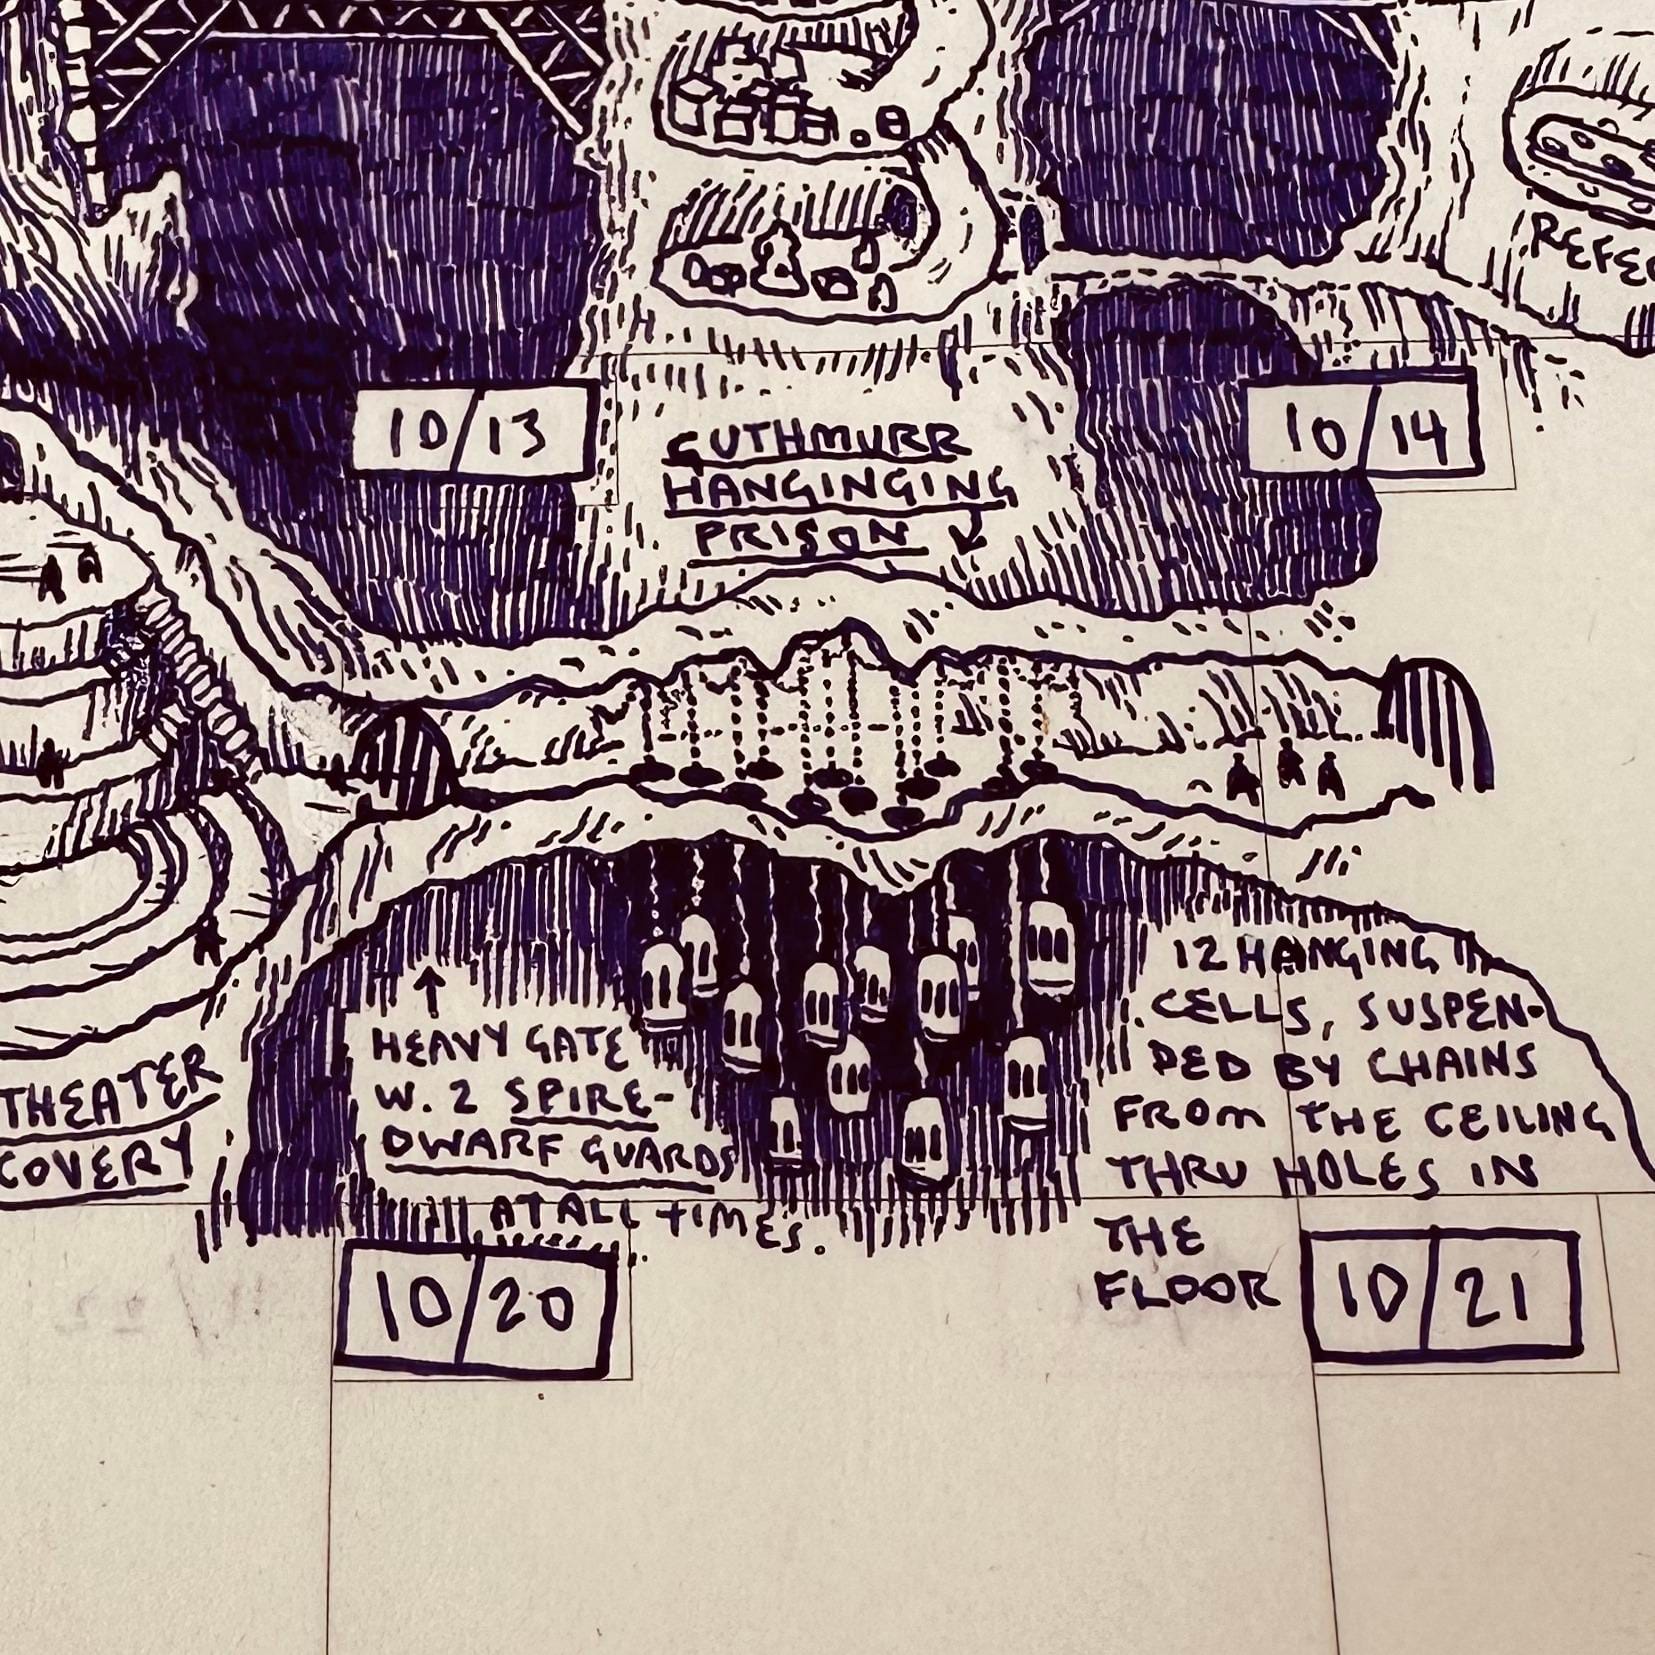 REFE
10/13
10/14
GUTHMURR
HANGINGING
PRISON
12 HANGING
CELLS, SUSPEN-
DED BY CHAINS
FROM THE CEILING
THRU HOLES IN
THE
FLOOR
HEAVY GATE
W. 2 SPIRE-
DWARF GUARDS
AT ALL TIMES.
THEATER
COVERY
10/20
10/21